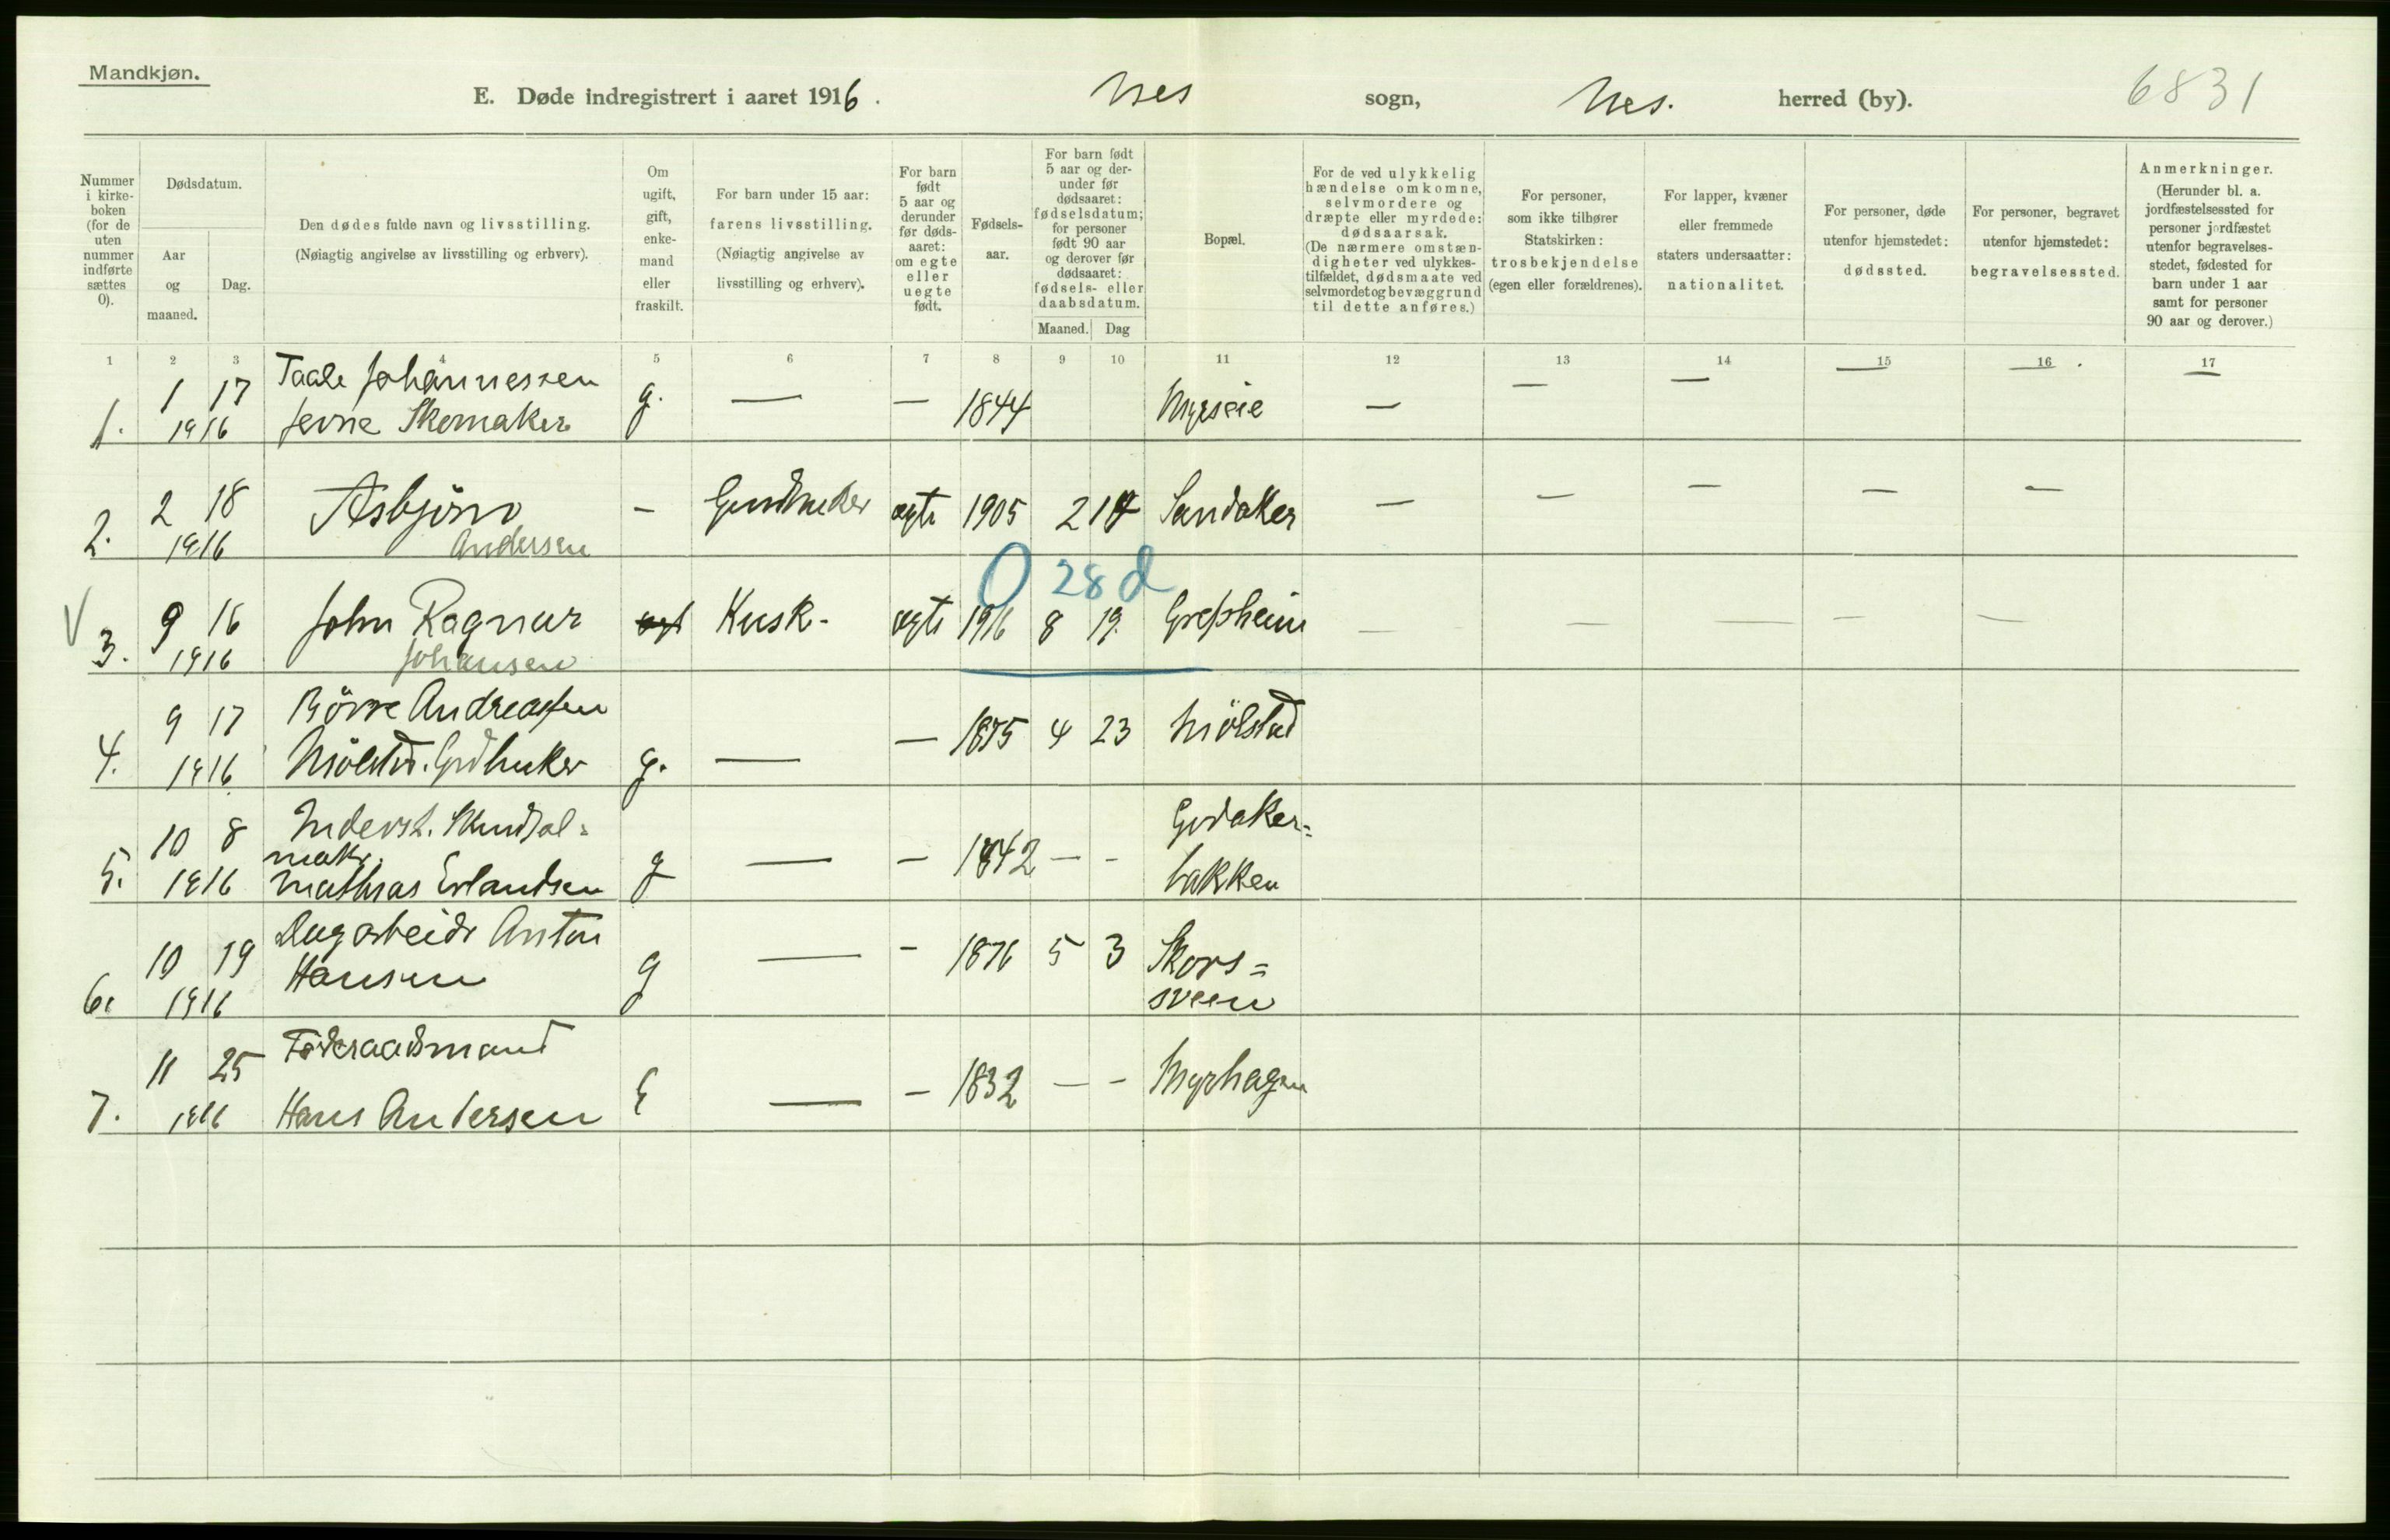 Mandkjøn.
E. Døde indregistrert i aaret 1916. Nes sogn, Nes. herred (by). 6831
Nummer i kirke-boken (for de uten nummer indførte sættes 0).
Dødsdatum.
Aar og maaned.
Dag.
Den dødes fulde navn og livsstilling.
(Nøiagtig angivelse av livsstilling og erhverv).
Om ugift, gift, enke-mand eller fraskilt.
For barn under 15 aar: farens livsstilling.
(Nøiagtig angivelse av livsstilling og erhverv).
For barn født 5 aar og derunder før døds-aaret: om egte eller uegte født.
Fødsels-aar.
For barn født 5 aar og der-under før dødsaaret: fødselsdatum; for personer født 90 aar og derover før dødsaaret: fødsels- eller daabsdatum.
Maaned. Dag
Bopæl.
For de ved ulykkelig hændelse omkomne, selvmordere og dræpte eller myrdede: dødsaarsak.
(De nærmere omstæn-digheter ved ulykkes-tilfældet, dødsmaate ved selvmordet og bevæggrund til dette anføres.)
For personer, som ikke tilhører Statskirken: trosbekjendelse (egen eller forældrenes).
For lapper, kvæner eller fremmede staters undersaatter: nationalitet.
For personer, døde utenfor hjemstedet: dødssted.
For personer, begravet utenfor hjemstedet: begravelsessted.
Anmerkninger.
(Herunder bl. a. jordfæstelsessted for personer jordfæstet utenfor begravelses-stedet, fødested for barn under 1 aar samt for personer 90 aar og derover.)
1 2 3 4 5 6 7 8 9 10 11 12 13 14 15 16 17
1. 1 17 Taale Johannessen g. — — 1844 Myrseie — — — — — —
1916 Jevne Skomaker
2. 2 18 Asbjörn — Gardbruker egte 1905 2 14 Sandaker — — — — —
1916 Andersen
0 28 d
V 3. 9 16 John Ragnar Kusk. egte 1916 8 19. Grefsheim — — — — —
1916 Johansen
4. 9 17 Börre Andreassen — 1875 4 23 Mölstad
1916 Mölstad. Grdbruker g. —
5. 10 8 Inderst. Skindsal= Godaker=
makr. g — — 1842 — —
1916 Mathias Erlandsen bakken
6. 10 19 Dagarbeidr Anton g — — 1876 5 3 Skors=
1916 Hansen sveen
7. 11 25 Föderaadsmand E — — 1832 — — Myrhagen
1916 Hans Andersen